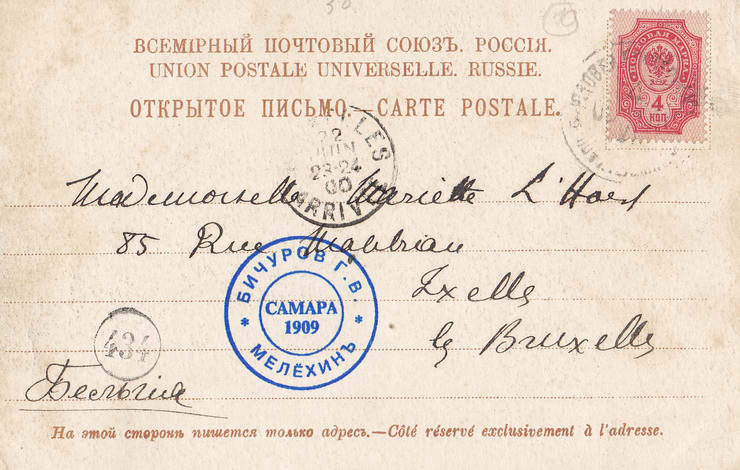 ВСЕМІРНЫЙ ПОЧТОВЫЙ СОЮЗЪ. РОССІЯ.
UNION POSTALE UNIVERSELLE. RUSSIE.
ОТКРЫТОЕ ПИСЬМО.—CARTE POSTALE.
ПОЧТОВАЯ МАРКА
4
КОП.
22
JUIN
23-24
00
ARRIVÉE
Mademoiselle Mariette L'Hoest
85 Rue Malibran
Ixelles
lez Bruxelles
БИЧУРОВ Г. В.
САМАРА
1909
* МЕЛЁХИНЪ *
434
Бельгія
На этой сторонѣ пишется только адресъ.—Côté réservé exclusivement à l'adresse.